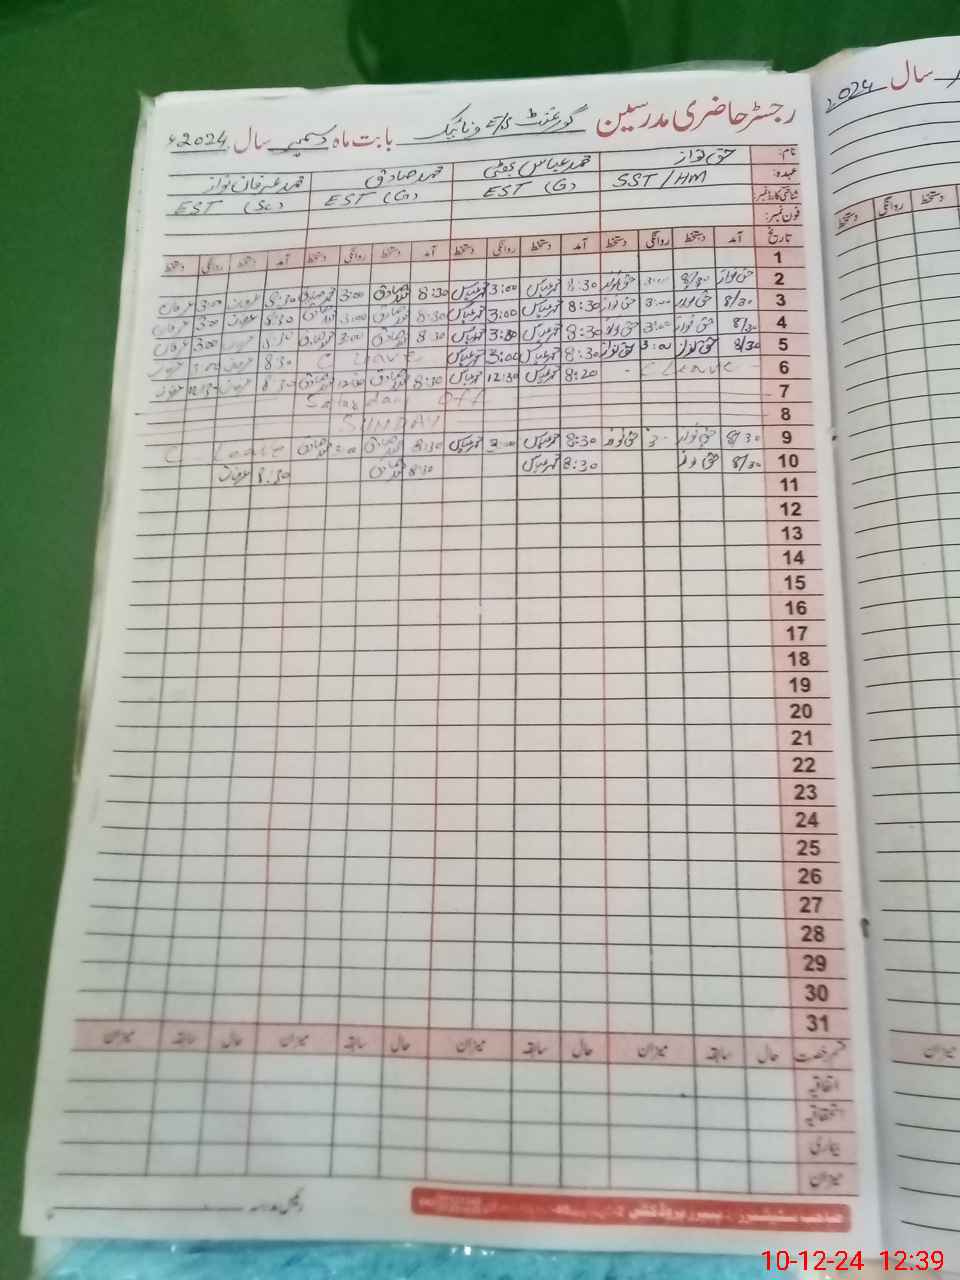 رجسٹر حاضری مدرسین گورنمنٹ E/S بابت ماہ دسمبر سال 2024ء
سال 2024
نام: حق نواز محمد عباس بھٹی محمد صادق محمد عرفان نواز
عہدہ: SST/HM EST (G) EST (G) EST (Sc)
شناختی کارڈ نمبر:
فون نمبر:
تاریخ آمد دستخط روانگی دستخط آمد دستخط روانگی دستخط آمد دستخط روانگی دستخط آمد دستخط روانگی دستخط
روانگی دستخط
1
2 حق نواز 8/30 3:00 حق نواز 8:30 محمد عباس 3:00 محمد عباس 8:30 محمد صادق 3:00 محمد صادق 8:30 عرفان 3:00 عرفان
3 8/30 حق نواز 3:00 حق نواز 8:30 محمد عباس 3:00 محمد عباس 8:30 محمد صادق 3:00 محمد صادق 8:30 عرفان 3:00 عرفان
4 8/30 حق نواز 3:00 حق نواز 8:30 محمد عباس 3:00 محمد عباس 8:30 محمد صادق 3:00 محمد صادق 8:30 عرفان 3:00 عرفان
5 8/30 حق نواز 3:00 حق نواز 8:30 محمد عباس 3:00 محمد عباس C Leave 8:30 عرفان عرفان
6 C Leave 8:20 محمد عباس 12:30 محمد عباس 8:30 محمد صادق 12:30 محمد صادق 8:30 عرفان 12:30 عرفان
7 Saturday Off
8 SUNDAY
9 8/30 حق نواز 3- حق نواز 8:30 محمد عباس 3:00 محمد عباس 8:30 محمد صادق 3:00 محمد صادق C Leave
10 8/30 حق نواز 8:30 محمد عباس 8:30 محمد صادق 8:30 عرفان
11
12
13
14
15
16
17
18
19
20
21
22
23
24
25
26
27
28
29
30
31
قسم رخصت حال سابقہ میزان حال سابقہ میزان حال سابقہ میزان حال سابقہ میزان
میزان
اتفاقیہ
استحقاقیہ
بیماری
میزان
رئیس مدرسہ
10-12-24 12:39